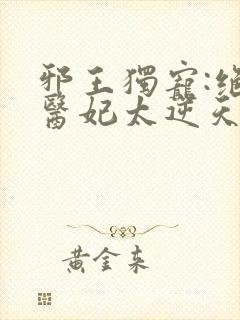 邪王獨寵:絕
醫妃太逆天
黃金來